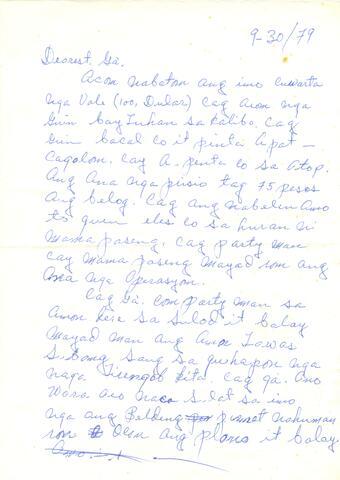 9-30/79
Dearest. Ga.
Acon nabaton ang imo Cuwarta
nga Vale (100, Dular) Cag Aron nga
Guin bay luhan sa Kalibo. Cag
Guin bacal co it pinta Apat -
Cagolon. Cay A. pinta co sa Atop.
Ang Ana nga pisio tag 75 pesos
Ang belog. Cag ang nabelin Amo
to guin eles co sa huran ni
Mama paseng. Cag party man
Cay Mama paseng Mayad ron ang
Ana nga Operasyon.
Cag Ga. Con party man sa
Amon sa Sulod it balay
Mayad man ang Amon Lawas
S. bong sang sa guihapon nga
naga kita. Cag ga.
Wara aco S. lat sa imo
nga ang Belding nahuman
ron Olon ang plano it balay.